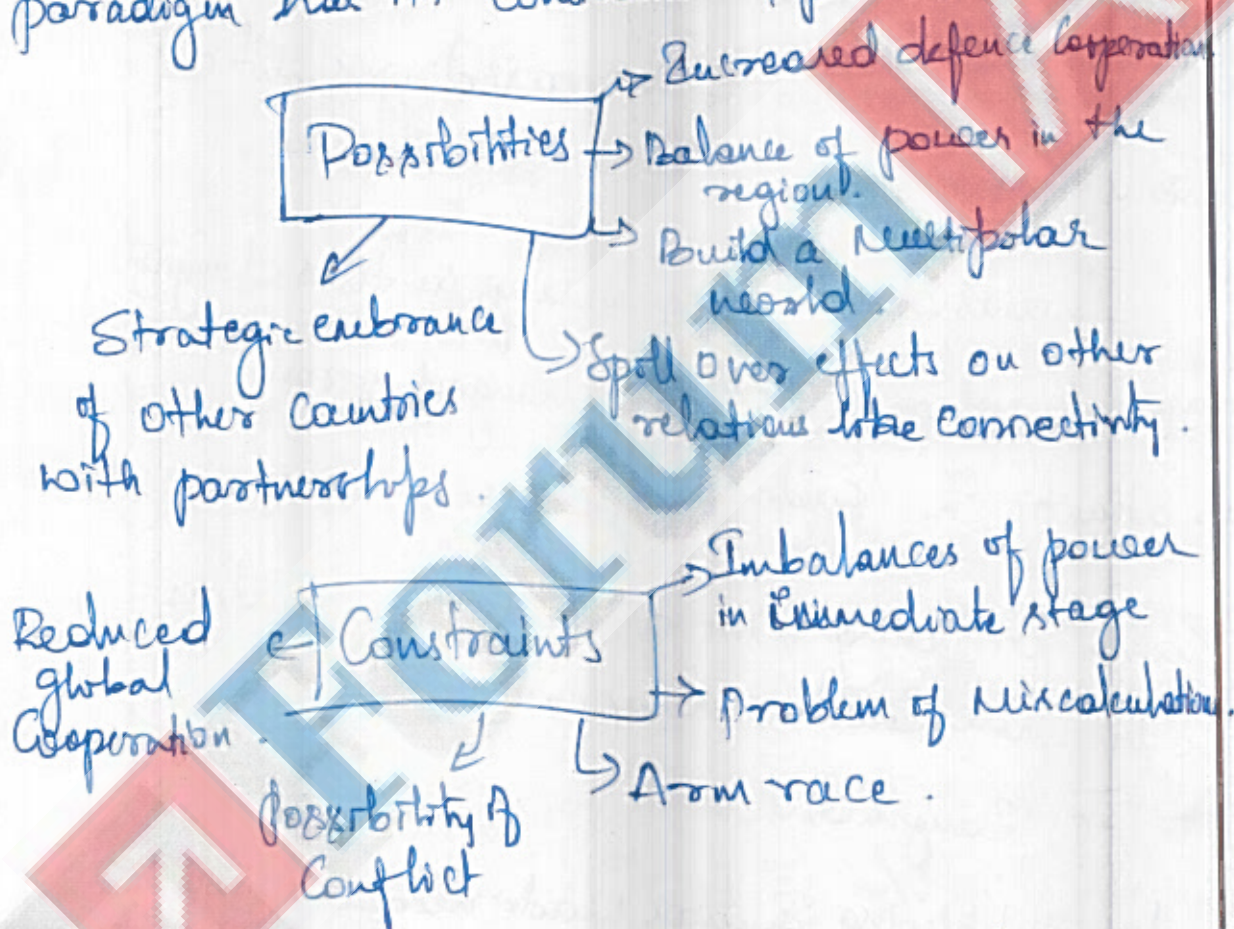 paradigm
Possibilities
Increased defence Cooperation
Balance of power in the
region.
Build a Multipolar
world
Spill Over effects on other
relations like connectivity.
Strategic embrance
of other Countries
with partnerships.
Constraints
Imbalances of power
in immediate stage
Problem of Miscalculation.
Arm race.
Possibility of
Conflict
Reduced
global
Cooperation.
Forum IA